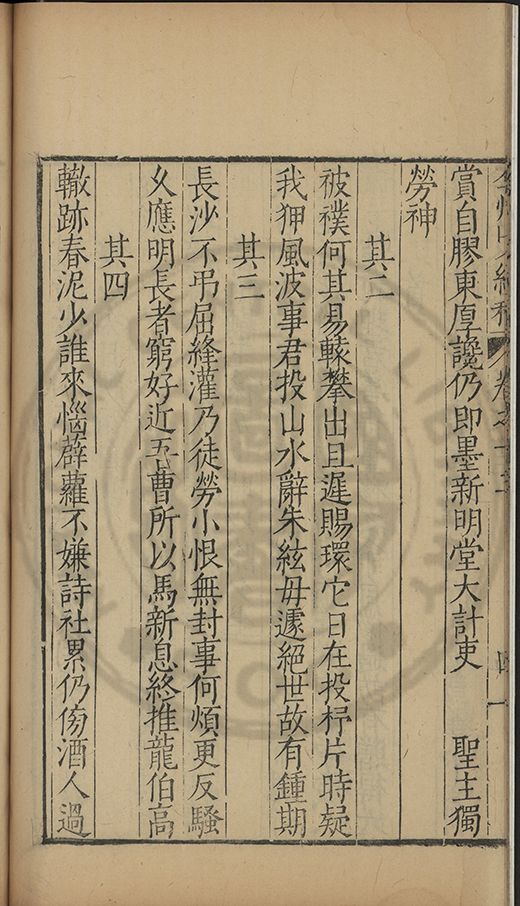 弇州山人續稿 卷之十三 四
賞自膠東厚讒仍即墨新明堂大計吏 聖主獨
勞神
其二
被襆何其易轅攀出且遲賜環它日在投杼片時疑
我狎風波事君投山水辭朱絃毋遽絕世故有鍾期
其三
長沙不弔屈絳灌乃徒勞小恨無封事何煩更反騷
乆應明長者窮好近吾曹所以馬新息終推龍伯高
其四
轍跡春泥少誰來惱薜蘿不嫌詩社累仍傍酒人過